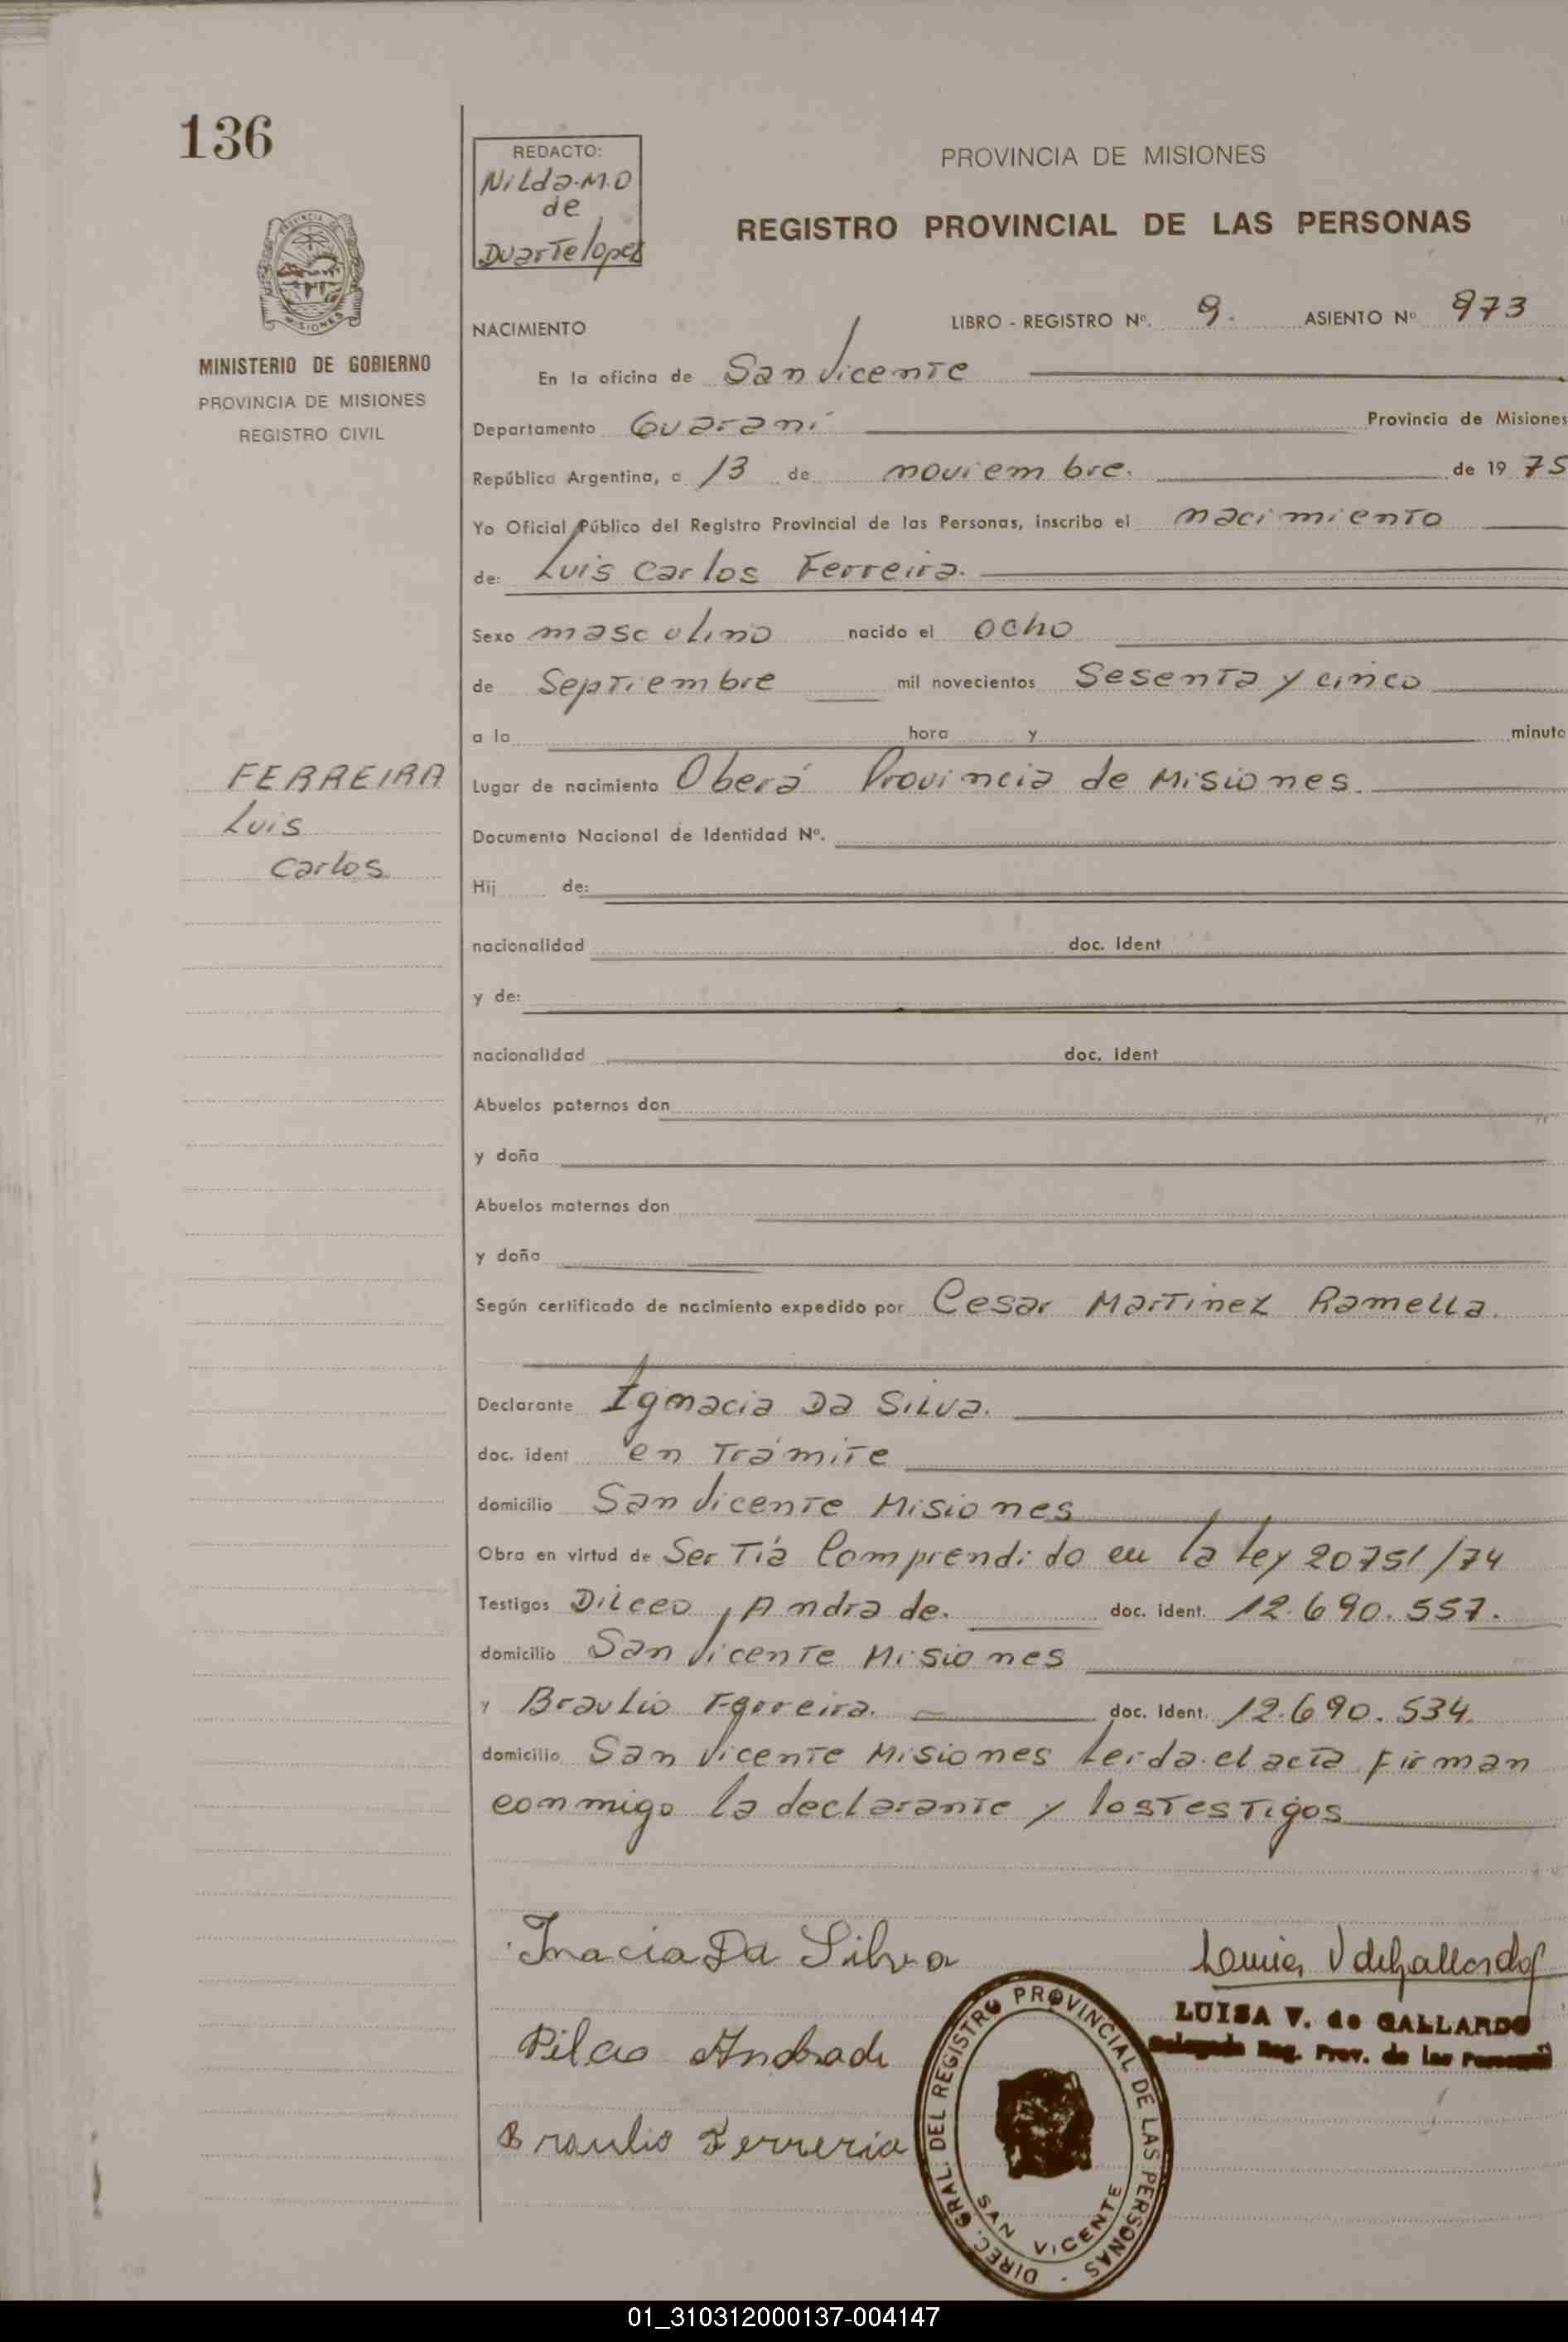 136
REDACTO:
Nilda.M.D
de
Duarte lopez
PROVINCIA DE MISIONES
REGISTRO PROVINCIAL DE LAS PERSONAS
PROVINCIA DE
MISIONES
MINISTERIO DE GOBIERNO
PROVINCIA DE MISIONES
REGISTRO CIVIL
NACIMIENTO LIBRO - REGISTRO Nº. 9. ASIENTO Nº 973
En la oficina de San Vicente
Departamento Guaraní Provincia de Misiones
República Argentina, a 13 de noviembre. de 1975
Yo Oficial Público del Registro Provincial de las Personas, inscribo el nacimiento
de: Luis Carlos Ferreira.
Sexo masculino nacido el ocho
de Septiembre mil novecientos Sesenta y cinco
a la hora y minuto
FERREIRA
Luis
Carlos
Lugar de nacimiento Oberá Provincia de Misiones.
Documento Nacional de Identidad Nº.
Hij de:
nacionalidad doc. ident
y de:
nacionalidad doc. ident
Abuelos paternos don
y doña
Abuelos maternos don
y doña
Según certificado de nacimiento expedido por Cesar Martinez Ramella.
Declarante Ignacia Da Silva.
doc. ident en Trámite
domicilio San Vicente Misiones
Obra en virtud de Ser Tía Comprendido en la ley 20751/74
Testigos Dilceo, Andra de. doc. ident. 12.690.557.
domicilio San Vicente Misiones
y Braulio Ferreira. doc. ident. 12.690.534.
domicilio San Vicente Misiones Leída el acta firman
conmigo la declarante y los testigos
Inacia Da Silva
Andrade
Braulio Ferreria
LUISA V. de GALLARDO
Delegada Reg. Prov. de las Personas
DIREC. GRAL. DEL REGISTRO PROVINCIAL DE LAS PERSONAS -
SAN VICENTE
01_310312000137-004147